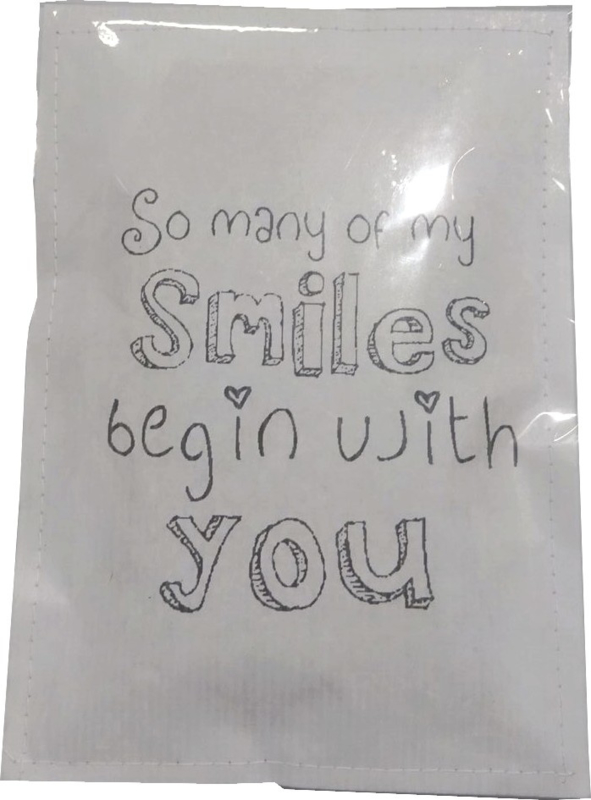 So many of my
Smiles
begin with
you